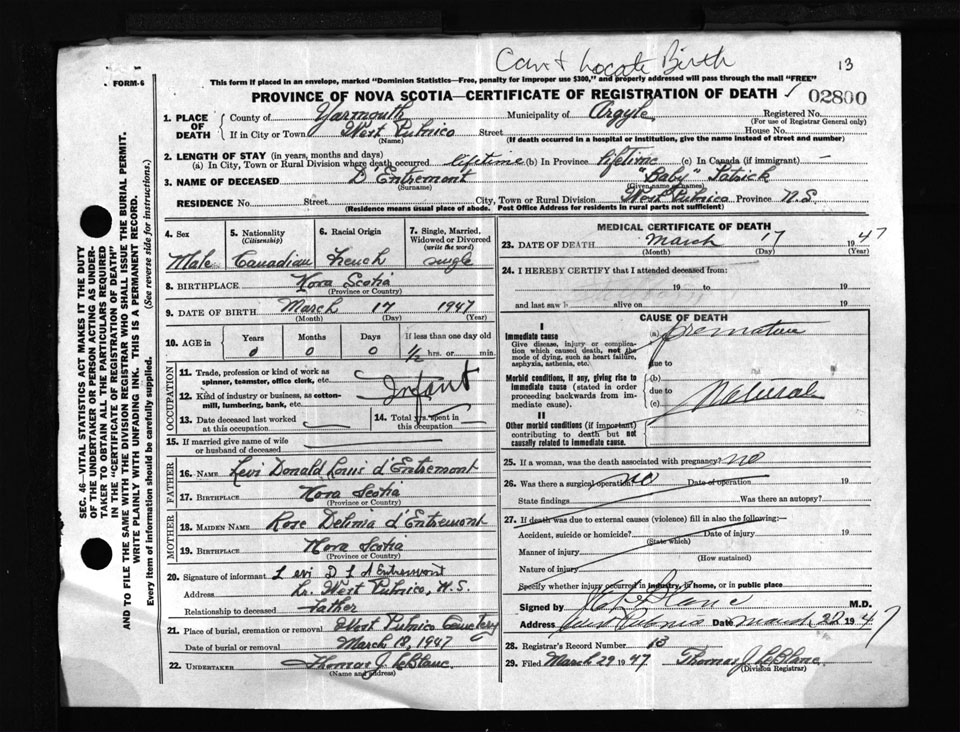 Can't Locate Birth
13
FORM-6
This form if placed in an envelope, marked "Dominion Statistics—Free, penalty for improper use $300," and properly addressed will pass through the mail "FREE"
PROVINCE OF NOVA SCOTIA—CERTIFICATE OF REGISTRATION OF DEATH
02800
1. PLACE OF DEATH
County of Yarmouth Municipality of Argyle Registered No.
(For use of Registrar General only)
If in City or Town West Pubnico Street House No.
(Name) (If death occurred in a hospital or institution, give the name instead of street and number)
2. LENGTH OF STAY (in years, months and days)
(a) In City, Town or Rural Division where death occurred lifetime (b) In Province lifetime (c) In Canada (if immigrant) —
3. NAME OF DECEASED D'Entremont "Baby" Patrick
(Surname) (Given name or names)
RESIDENCE No. Street City, Town or Rural Division West Pubnico Province N.S.
(Residence means usual place of abode. Post Office Address for residents in rural parts not sufficient)
4. Sex
Male
5. Nationality
(Citizenship)
Canadian
6. Racial Origin
French
7. Single, Married, Widowed or Divorced
(write the word)
single
8. BIRTHPLACE Nova Scotia
(Province or Country)
9. DATE OF BIRTH March 17 1947
(Month) (Day) (Year)
10. AGE in Years Months Days If less than one day old
0 0 0 1/2 hrs. or min.
OCCUPATION
11. Trade, profession or kind of work as spinner, teamster, office clerk, etc.
12. Kind of industry or business, as cotton-mill, lumbering, bank, etc.
Infant
13. Date deceased last worked at this occupation
14. Total yrs. spent in this occupation
15. If married give name of wife or husband of deceased
FATHER
16. NAME Levi Donald Louis d'Entremont
17. BIRTHPLACE Nova Scotia
(Province or Country)
MOTHER
18. MAIDEN NAME Rose Delinia d'Entremont
19. BIRTHPLACE Nova Scotia
(Province or Country)
20. Signature of informant Levi D L d'Entremont
Address Lr. West Pubnico, N.S.
Relationship to deceased father
21. Place of burial, cremation or removal West Pubnico Cemetery
Date of burial or removal March 18, 1947
22. UNDERTAKER Thomas J. LeBlanc
(Name and address)
MEDICAL CERTIFICATE OF DEATH
23. DATE OF DEATH March 17 1947
(Month) (Day) (Year)
24. I HEREBY CERTIFY that I attended deceased from:
19 to 19
and last saw h alive on 19
CAUSE OF DEATH
I
Immediate cause
Give disease, injury or complication which caused death, not the mode of dying, such as heart failure, asphyxia, asthenia, etc.
(a) premature
due to
Morbid conditions, if any, giving rise to immediate cause (stated in order proceeding backwards from immediate cause).
(b)
due to
(c) Natural
II
Other morbid conditions (if important) contributing to death but not causally related to immediate cause.
25. If a woman, was the death associated with pregnancy? no
26. Was there a surgical operation? no Date of operation 19
State findings Was there an autopsy?
27. If death was due to external causes (violence) fill in also the following:—
Accident, suicide or homicide? Date of injury 19
(State which)
Manner of injury
(How sustained)
Nature of injury
Specify whether injury occurred in industry, in home, or in public place
Signed by LeBlanc M.D.
Address West Pubnico Date March 22 1947
28. Registrar's Record Number 13
29. Filed March 29 1947 Thomas J. LeBlanc
(Division Registrar)
SEC. 46- VITAL STATISTICS ACT MAKES IT THE DUTY
OF THE UNDERTAKER OR PERSON ACTING AS UNDER-
TAKER TO OBTAIN ALL THE PARTICULARS REQUIRED
IN THE "CERTIFICATE OF REGISTRATION OF DEATH"
AND TO FILE THE SAME WITH THE DIVISION REGISTRAR WHO SHALL ISSUE THE BURIAL PERMIT.
WRITE PLAINLY WITH UNFADING INK. THIS IS A PERMANENT RECORD.
Every item of information should be carefully supplied. (See reverse side for instructions.)